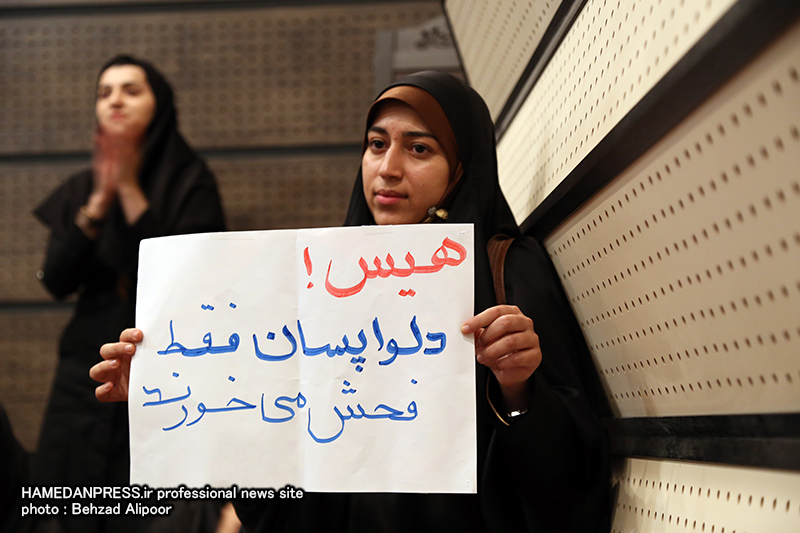 هیس!
دلواپسان فقط
فحش می خورند
HAMEDANPRESS.ir professional news site
photo : Behzad Alipoor